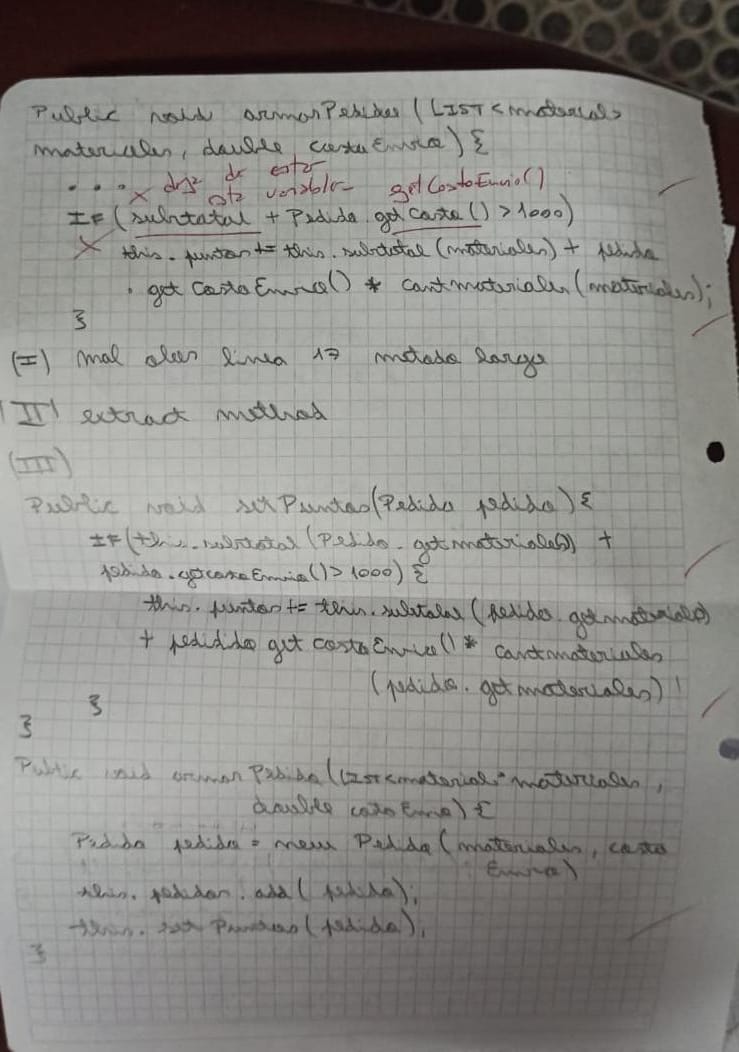 Public void armarPedidos (LIST <material>
materiales, double costoEnvio) {
. . . x de
estar
esta variable getCostoEnvio()
IF (subtotal + Pedido getCosto () > 1000)
x this. puntos += this. subtotal (materiales) + pedido
. get CostoEnvio() * cantmateriales (materiales);
}
(I) mal olor linea 17 metodo largo
(II) extract method
(III)
Public void setPuntos(Pedido pedido) {
IF (this.subtotal (Pedido. getmateriales) +
pedido.getcostoEnvio() > 1000) {
this. puntos += this. subtotal (pedido. getmateriales)
+ pedido get costoEnvio() * cantmateriales
(pedido. getmateriales)
}
}
Public void armar Pedido (LIST<material> materiales,
double costoEnvio) {
Pedido pedido = new Pedido (materiales, costo
Envio)
this. pedidos. add (pedido);
this. set Puntos (pedido);
}